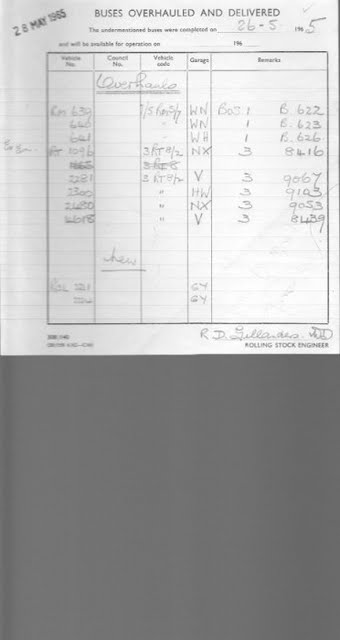 28 MAY 1965
BUSES OVERHAULED AND DELIVERED
The undermentioned buses were completed on 26-5- 1965
and will be available for operation on 196
Vehicle No. Council No. Vehicle code Garage Remarks
Overhauls
RM 639 WN BOS 1 B. 622
640 " WN 1 B. 623
641 " WH 1 B. 626
RT 1096 3RT8/2 NX 3 8416
3RT8
2281 3RT8/2 V 3 9067
2300 " HW 3 9193
2480 " NX 3 9053
4618 " V 3 8439
New
RML 2211 GY
GY
R D Gillanders
ROLLING STOCK ENGINEER